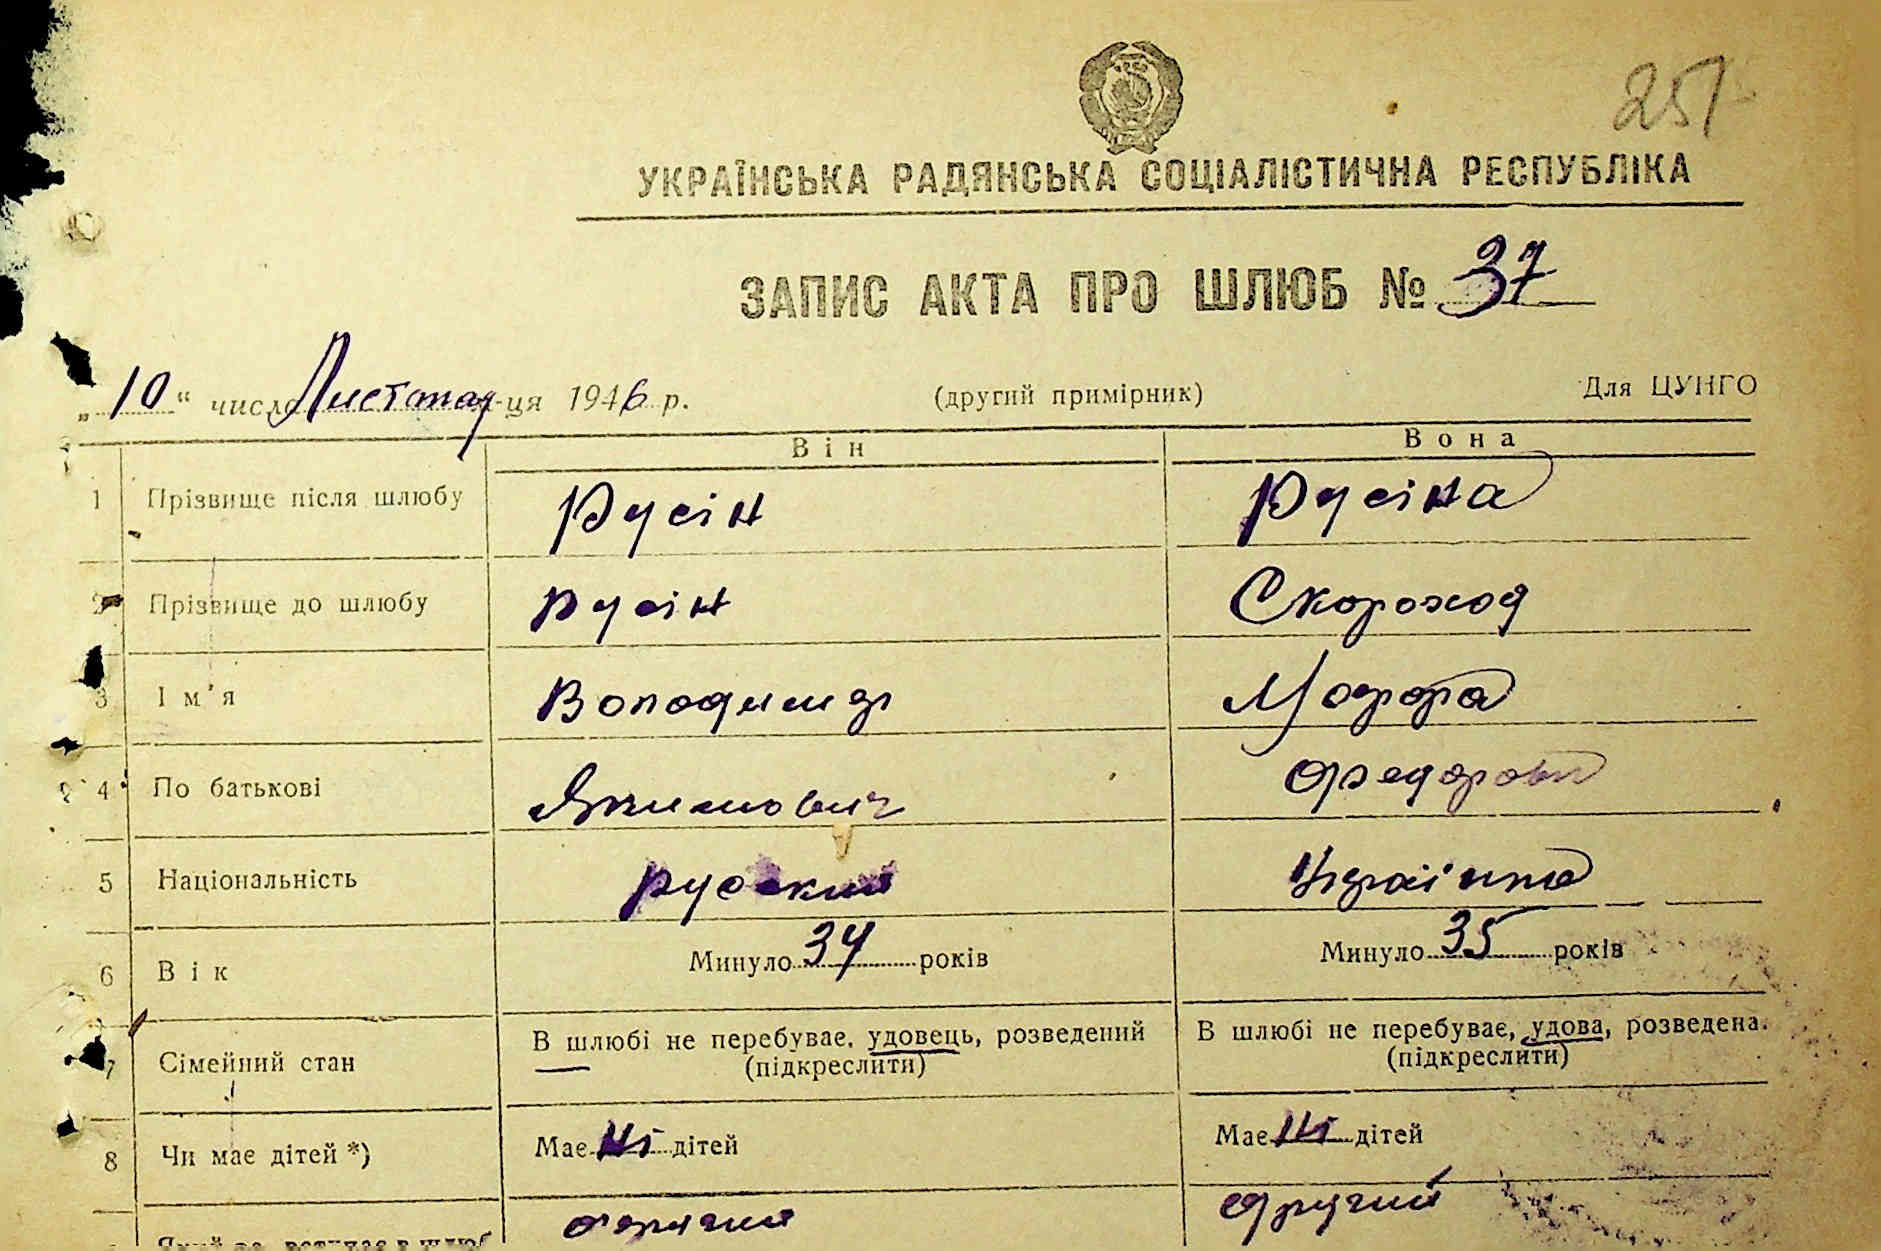 257
УКРАЇНСЬКА РАДЯНСЬКА СОЦІАЛІСТИЧНА РЕСПУБЛІКА
ЗАПИС АКТА ПРО ШЛЮБ № 37
„10“ числа Листопад-ця 1946 р. (другий примірник) Для ЦУНГО
Він Вона
1 Прізвище після шлюбу Русін Русіна
2 Прізвище до шлюбу Русін Скороход
3 Ім'я Володимир
4 По батькові Якимович Федоровн
5 Національність русский Українка
6 Вік Минуло 34 років Минуло 35 років
7 Сімейний стан В шлюбі не перебуває, удовець, розведений (підкреслити) В шлюбі не перебуває, удова, розведена. (підкреслити)
8 Чи має дітей *) Має ні дітей Має ні дітей
Який раз вступає в шлюб другий другий